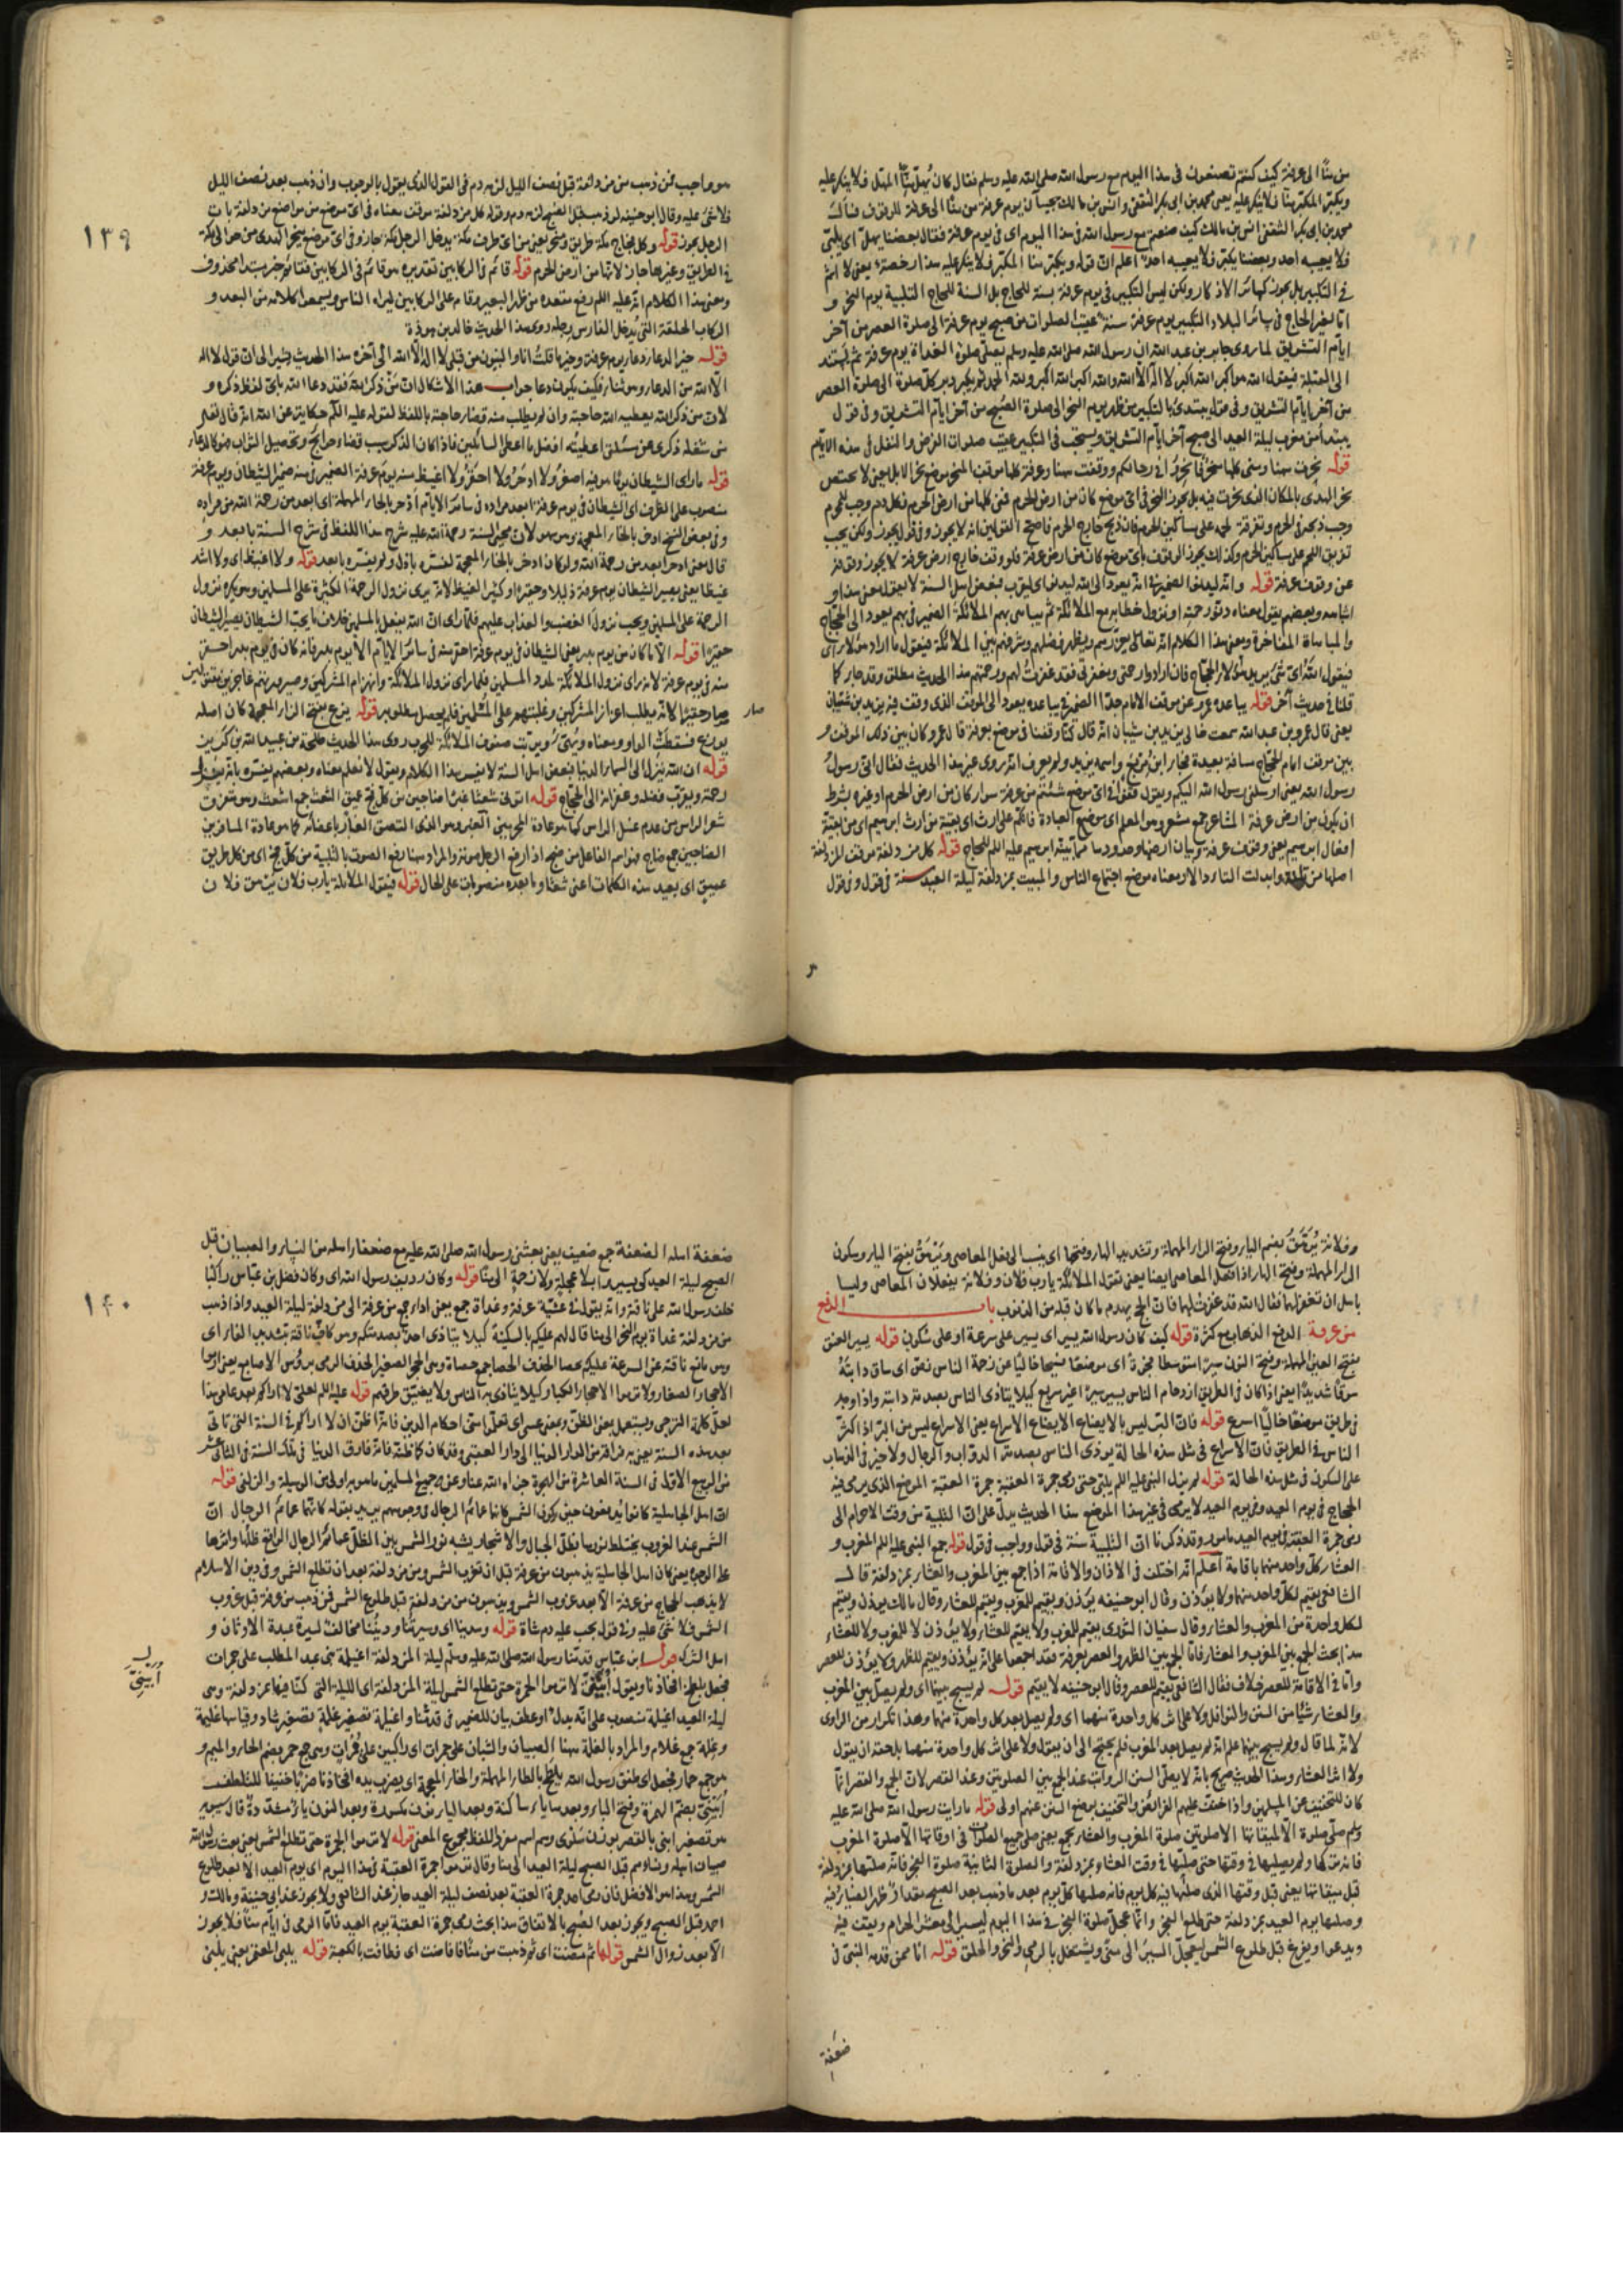 من منًا الى عرفة كيف كنتم تصنعون في هذا اليوم مع رسول الله صلى الله عليه وسلم فقال كان يُهلّ منّا المهلّ فلا ينكر عليه
ويكبّر المكبّر منّا فلا ينكر عليه يعني محمد بن ابي بكر الثقفي وانس بن مالك يجيبان يوم عرفة من منًا الى عرفة للوقوف فسأل
محمد بن ابي بكر الثقفي انس بن مالك كيف صنعتم مع رسول الله في هذا اليوم اي في يوم عرفة فقال بعضنا يهلّ اي يلبّي
فلا يعيبه احد وبعضنا يكبّر فلا يعيبه احد اعلم ان قوله ويكبّر منا المكبّر فلا ينكر عليه هذا رخصة يعني لا اثم
في التكبير بل يجوز كسائر الاذكار ولكن ليس التكبير في يوم عرفة سنة للحاج بل السنة للحاج التلبية يوم النحر و
امّا لغير الحاج في سائر البلاد التكبير يوم عرفة سنة عقيب الصلوات من صبح يوم عرفة الى صلوة العصر من آخر
ايّام التشريق لما روى جابر بن عبد الله ان رسول الله صلى الله عليه وسلم يصلّي صلوة الغداة يوم عرفة ثم يستند
الى القبلة فيقول الله اكبر الله اكبر لا اله الا الله والله اكبر الله اكبر ولله الحمد ثم يكبر دبر كلّ صلوة الى صلوة العصر
من آخر ايّام التشريق وفي قوله يبتدئ بالتكبير من ظهر يوم النحر الى صلوة الصّبح من آخر ايّام التشريق وفي قول
يبتدأ من مغرب ليلة العيد الى صبح آخر ايّام التشريق ويستحب في التكبير عقيب صلوات الفرض والنفل في هذه الايّام
قوله نحرت ههنا ومنى كلها منحرٌ فانحروا في رحالكم ووقفت ههنا وعرفة كلها موقف المنحر موضع نحر الابل يعني لا يختص
نحر الهدى بالمكان الذي نحرت فيه بل يجوز النحر في ايّ موضع كان من ارض الحرم فمنى كلها من ارض الحرم فكل دم وجب للمحرم
وجب ذبحه في الحرم وتفرقة لحمه على مساكين الحرم فان ذبح خارج الحرم فاصحّ القولين انه لا يجوز وفي قول يجوز ولكن يجب
تفريق اللحم على مساكين الحرم وكذلك يجوز الوقوف باي موضع كان من ارض عرفة فلو وقف خارج ارض عرفة لا يجوز وقوفه
عن وقوف عرفة قوله وانّه ليدنو الضمير في انّه يعود الى الله ليدنو اي ليقرب فبعض اهل السنة لا يعقل معنى هذا و
امثاله وبعضهم يقول معناه دنوّ رحمته او نزول خطابه مع الملائكة ثم يباهي بهم الملائكة الضمير في بهم يعود الى الحجّاج
والمباهاة المفاخرة ومعنى هذا الكلام انّه تعالى يعزّزهم ويظهر فضلهم وشرفهم بين الملائكة فيقول ما اراد هؤلاء اي
فيقول الله ايّ شيء يريد هؤلاء الحجّاج فان ارادوا رحمتي ومغفرتي فقد غفرت لهم ورحمتهم هذا الحديث مطلق وقد جاء كما
قلنا في حديث آخر قوله يباعده عمرو عن موقف الامام جدّا الضمير في يباعده يعود الى الموقف الذي وقف فيه يزيد بن شيبان
يعني قال عمرو بن عبد الله سمعت خالي يزيد بن شيبان انّه قال كنّا وقفنا في موضع بعرفة قال عمرو كان بين ذلك الموقف و
بين موقف امام الحجّاج مسافة بعيدة فجاء ابن مربع واسمه يزيد ولم يعرف انّه روى غير هذا الحديث فقال انّي رسول
رسول الله يعني ارسلني رسول الله اليكم ويقول قفوا في ايّ موضع شئتم من عرفة سواء كان من ارض الحرم او غيره بشرط
ان يكون من ارض عرفة المشاعر جمع مشعر وهو المعلم اي موضع العبادة فانّكم على ارث اي بقية من ارث ابرهيم اي من بقية
افعال ابرهيم يعني وقوف عرفة وبيان ارضها وحدودها مما بيّنه ابرهيم عليه السلم للحجاج قوله كل مزدلفة موقف المزدلفة
اصلها مزتلفة وابدلت التاء دالا ومعناه موضع اجتماع الناس والمبيت بمزدلفة ليلة العيد سنة في قول وفي قول
١٣٩
هو واجب فمن ذهب من مزدلفة قبل نصف الليل لزمه دم في القول الذي يقول بالوجوب وان ذهب بعد نصف الليل
فلا شيء عليه وقال ابو حنيفة لو ذهب قبل الصبح لزمه دم وقوله كل مزدلفة موقف معناه في ايّ موضع من مواضع مزدلفة بات
الرجل يجوز قوله وكل فجاج مكة طريق ومنحر يعني من ايّ طرف مكة يدخل الرجل مكة جاز وفي ايّ موضع ينحر الهدى من حوالي مكة
في الطريق وغيرها جاز لانها من ارض الحرم قوله قائم في الركابين تقديره هو قائم في الركابين فقائم خبر مبتدا محذوف
ومعنى هذا الكلام انّه عليه السلم رفع مقعده من ظهر البعير وقام على الركابين ليراه الناس ويسمعوا كلامه من البعد و
الركاب الحلقة التي يُدخل الفارس رجله روى هذا الحديث خالد بن هوذة
قوله خير الدعاء دعاء يوم عرفة وخير ما قلتُ انا والنبيون من قبلي لا اله الا الله الى آخره هذا الحديث يشير الى ان قول لا اله
الا الله من الدعاء وهو ثناء فكيف يكون دعا جواب هذا الاشكال انّ مَن ذكر الله فقد دعا الله بايّ لفظ ذكره و
لان من ذكر الله يعطيه الله حاجته وان لم يطلب منه قضاء حاجته باللفظ لقوله عليه السلم حكاية عن الله انّه قال تعالى
من شغله ذكري عن مسئلتي اعطيته افضل ما اعطى السائلين فاذا كان الذكر سبب قضاء حوائجٍ وتحصيل الثواب فهو كالدعاء
قوله ما راى الشيطان يوما هو فيه اصغر ولا ادحرُ ولا احقرُ ولا اغيظ منه يوم عرفة الضمير في منه ضمير الشيطان ويوم عرفة
منصوب على الظرف اي الشيطان في يوم عرفة ابعد مراده في سائر الايّام ادحر بالحاء المهملة اي ابعد من رحمة الله من مراده
وفي بعض النسخ ادخر بالخاء المعجمة وهو سهو لان محيي السنة رحمة الله عليه شرح هذا اللفظ في شرح السنة بابعد و
قال معنى ادحر ابعد من رحمة الله ولو كان ادخر بالخاء المعجمة لفسّره باذل ولم يفسّره بابعد قوله ولا اغيظ اي ولا اشد
غيظا يعني يصير الشيطان يوم عرفة ذليلا وحقيرا وكثير الغيظ لانه يرى نزول الرحمة الكثيرة على المسلمين وهو يكره نزول
الرحمة على المسلمين ويحب نزول الغضب والعذاب عليهم فلمّا راى انّ الله يفعل بالمسلمين خلاف ما يحبّ الشيطان يصير الشيطان
حقيرا قوله الا ما كان من يوم بدر يعني الشيطان في يوم عرفة احقر منه في سائر الايّام الا يوم بدر فانه كان في يوم بدر احقر
منه في يوم عرفة لانه راى نزول الملائكة لمدد المسلمين فلما راى نزول الملائكة وانهزام المشركين
صار حقيرا لانه يطلب اعزاز المشركين وغلبتهم على المسلمين فلم يحصل مطلوبه قوله يزع بفتح الزاء المعجمة كان اصله
يوزع فسقطت الواو ومعناه ويُهيّء ويرتّب صفوف الملائكة للحرب روى هذا الحديث طلحة بن عبيد الله بن كريز
قوله ان الله ينزل الى السماء الدنيا فبعض اهل السنة لا يفسر هذا الكلام ويقول لا نعلم معناه وبعضهم يفسّره بانه ينزل
رحمته ويقرّب فضله وغفرانه الى الحجاج قوله اتوني شعثا غبرا ضاجين من كل فج عميق الشعث جمع اشعث وهو متفرق
شعر الراس من عدم غسل الراس كما هو عادة المحرمين الغبر وهو الذي التصق الغبار باعضائه كما هو عادة المسافرين
الضاجين جمع ضاج فهو اسم الفاعل من ضج اذا رفع الرجل صوته والمراد ههنا رفع الصوت بالتلبية من كلّ فج اي من كل طريق
عميق اي بعيد هذه الكلمات اعني شعثا وما بعده منصوبات على الحال قوله فيقول الملائكة يارب فلان يُرَهّق وفلان
صار
وفلانة يُرَهّقُ بضم الياء وفتح الراء المهملة وتشديد الهاء وفتحها اي ينسب الى فعل المعاصي ويَرْهَقُ بفتح الياء وسكون
الراء المهملة وفتح الهاء اذا فعل المعاصي ايضا يعني تقول الملائكة يارب فلان وفلانة يفعلان المعاصي وليسا
باهل ان تغفر لهما فقال الله قد غفرت لهما فان الحج يهدم ما كان قبله من الذنوب باب الدفع
من عرفة الدفع الذهاب مع كثرة قوله كيف كان رسول الله يسير اي يسير على سرعة او على سكون قوله يسير العنق
بفتح العين المهملة وفتح النون سيرا متوسطا فجوة اي موضعًا فسيحا خاليًا عن زحمة الناس نصّ اي ساق دابته
سوقًا شديدًا يعني اذا كان في الطريق ازدحام الناس يسير سيرا غير سريع كيلا يتاذى الناس بصدمة دابته واذا وجد
في طريق موضعًا خاليًا اسرع قوله فان البرّ ليس بالايضاع الايضاع الاسراع يعني الاسراع ليس من البرّ اذا كثر
الناس في الطريق فان الاسراع في مثل هذه الحالة يوذي الناس بصدمة الدوّاب والرجال ولا خير في الذهاب
على السكون في مثل هذه الحالة قوله لم يزل النبي عليه السلم يلبّي حتى رمى جمرة العقبة جمرة العقبة الموضع الذي يرمى فيه
الحجاج في يوم العيد وفي يوم العيد لا يرمى في غير هذا الموضع هذا الحديث يدلّ على انّ التلبية من وقت الاحرام الى
رمى جمرة العقبة في يوم العيد مامور وقد ذكرنا ان التلبية سنّة في قول وواجب في قول قوله جمع النبي عليه السلم المغرب و
العشاء كلّ واحد منهما باقامة اعلم انّه اختلف في الاذان والاقامة اذا جمع بين المغرب والعشاء بمزدلفة قال
الشافعي يقيم لكلّ واحد منهما ولا يؤذن وقال ابو حنيفه يؤذن ويقيم للمغرب ويقيم للعشاء وقال مالك يوذن ويقيم
لكل واحدة من المغرب والعشاء وقال سفيان الثوري يقيم للمغرب ولا يقيم للعشاء ولا يؤذن لا للمغرب ولا للعشاء
هذا بحث الجمع بين المغرب والعشاء فامّا الجمع بين الظهر والعصر بعرفة فقد اجمعوا على انّه يؤذن ويقيم للظهر ولا يؤذن للعصر
وامّا في الاقامة للعصر خلاف فقال الشافعي يقيم للعصر وقال ابو حنيفه لا يقيم قوله لم يسبح بينهما اي ولم يصلّ بين المغرب
والعشاء شيئا من السنن والنوافل ولا على اثر كل واحدة منهما اي ولم يصل بعد كل واحدة منهما وهذا تكرار من الراوى
لانه لما قال ولم يسبح بينهما علم انّه لم يصل بعد المغرب فلم يحتج الى ان يقول ولا على اثر كل واحدة منهما بل حقه ان يقول
ولا اثر العشاء وهذا الحديث صريح بانّه لا يصلّي السنن الرواتب عند الجمع بين الصلوتين وعند القصر لان الجمع والقصر انّما
كان للتخفيف عن المسلمين واذا خفف عليهم الفرائض والتخفيف بوضع السنن عنهم اولى قوله ما رايت رسول الله صلى الله عليه
وسلم صلّى صلوة الا لميقاتها الا صلوتين صلوة المغرب والعشاء بجمع يعني صلّى جميع الصلوات في اوقاتها الا صلوة المغرب
فانه تركها ولم يصليها في وقتها حتى صلّيها في وقت العشاء بمزدلفة والصلوة الثانية صلوة الفجر فانّه صلّيها بمزدلفة
قبل ميقاتها يعني قبل وقتها الذي صلّيها فيه كل يوم فانه صليها كلّ يوم بعد ما ذهب بعد الصبح مقدار ظهر الضياء فيه
وصليها يوم العيد بمزدلفة حتى طلع الفجر وانّما عجّل صلوة الفجر في هذا اليوم ليسير الى مشعر الحرام ويقف فيه
ويدعو ويفرغ قبل طلوع الشمس ليعجّل السير الى منّى ويشتغل بالرمي والنحر والحلق قوله انا ممن قدم النبي في
ضعفة
١٤٠
ضعفة اهله الضعفة جمع ضعيف يعني بعثني رسول الله صلى الله عليه مع ضعفاء اهله من النساء والصبيان قبل
الصبح ليلة العيد كي يسيروا بلا عجلة ولا زحمة الى منًا قوله وكان رديف رسول الله اي وكان فضل بن عبّاس راكبًا
خلف رسول الله على ناقته وانّه يقول في عشيّة عرفة وغداة جمع يعني اذا رجع من عرفة الى مزدلفة ليلة العيد واذا ذهب
من مزدلفة غداة يوم النحر الى منا قال لهم عليكم بالسكينة كيلا يتاذى احد بصدمتكم وهو كافّ ناقته بتشديد الفاء اي
وهو مانع ناقته عن السرعة عليكم بحصا الخذف الحصا جمع حصاة وهي الحجر الصغير الخذف الرمى برؤس الاصابع يعني ارموا
الاحجار الصغار ولا ترموا الاحجار الكبار كيلا يتاذى به الناس ولا يضيّق طرقهم قوله عليه السلم لعلّي لا اراكم بعد عامي هذا
لعلّ كلمة الترجى ويستعمل بمعنى الظن وبمعنى عسى اي تعلّموا منّي احكام الدين فانّي اظنّ ان لا اراكم في السنة التي تاتي
بعد هذه السنة يعني به فراقه من الدار الدنيا الى دار العقبى وقد كان كما ظنّه فانّه فارق الدنيا في تلك السنة في الثاني عشر
من الربيع الاول في السنة العاشرة من الهجرة جزاه الله عنا وعن جميع المسلمين ما هو به اولى من الوسيلة والزلفى قوله
ان اهل الجاهلية كانوا يدفعون حين يكون الشمس كانها عمائم الرجال في وجوههم يريد بقوله كانّها عمائم الرجال انّ
الشمس عند الغروب يختلط نورها بظلّ الجبال والاشجار يشبه نور الشمس بين الظلّ عمائم الرجال الواقع ظلّها واثرها
على الوجوه يعني كان اهل الجاهلية يذهبون من عرفة قبل ان تغرب الشمس ومن مزدلفة بعد ان تطلع الشمس وفي دين الاسلام
لا يذهب الحجاج من عرفة الا بعد غروب الشمس ويذهبون من مزدلفة قبل طلوع الشمس فمن ذهب من عرفة قبل غروب
الشمس فلا شيء عليه وفي قول يجب عليه دم شاة قوله وهدينا اي وسيرتنا وديننا مخالف لسيرة عبدة الاوثان و
اهل الشرك قول ابن عبّاس قدّمنا رسول الله صلى الله عليه وسلم ليلة المزدلفة اغيلمة بني عبد المطلب على حمرات
فجعل يلطح افخاذنا ويقول أُبَيْنِيَّ لا ترموا الجمرة حتى تطلع الشمس ليلة المزدلفة اي الليلة التي كنّا فيها بمزدلفة وهي
ليلة العيد اغيلمة منصوب على انّه بدلٌ او عطف بيان للضمير في قدّمنا واغيلمة تصغير غلمة تصغير شاذ وقياسها غليمة
وغلمة جمع غلام والمراد بالغلمة ههنا الصبيان والشبان على حمرات اي راكبين على حُمُراتٍ وهي جمع حمر بضم الحاء والميم و
هو جمع حمار فجعل اي طفق رسول الله يلطح بالطاء المهملة والحاء المهملة اي يضرب بيده افخاذنا ضربًا خفيفًا للتلطف
أُبَيْنِيَّ بضم الهمزة وفتح الباء وبعدها ياء ساكنة وبعد الياء نون مكسورة وبعد النون ياء مشدّدة قال سيبويه
هو تصغير ابنى بالقصر بوزن سَلْمى وهو اسم مفرد اللفظ مجموع المعنى قوله لا ترموا الجمرة حتى تطلع الشمس يعني بعث رسول الله
صبيان اهله ونساءهم قبل الصبح ليلة العيد الى منا وقال ترموا جمرة العقبة في هذا اليوم اي يوم العيد الا بعد طلوع
الشمس وهذا هو الافضل فان رمى احد جمرة العقبة بعد نصف ليلة العيد جاز عند الشافعي ولا يجوز عند ابي حنيفة ومالك و
احمد قبل الصبح ويجوز بعد الصّبح بالاتفاق هذا بحث رمى جمرة العقبة يوم العيد فامّا الرمي في ايّام منًا فلا يجوز
الا بعد زوال الشمس قولها ثم مضت اي ثم ذهبت من منًا فافاضت اي فطافت بالكعبة قوله يلبي المعتمر يعني يلبّي
أُبَيْنِيَّ